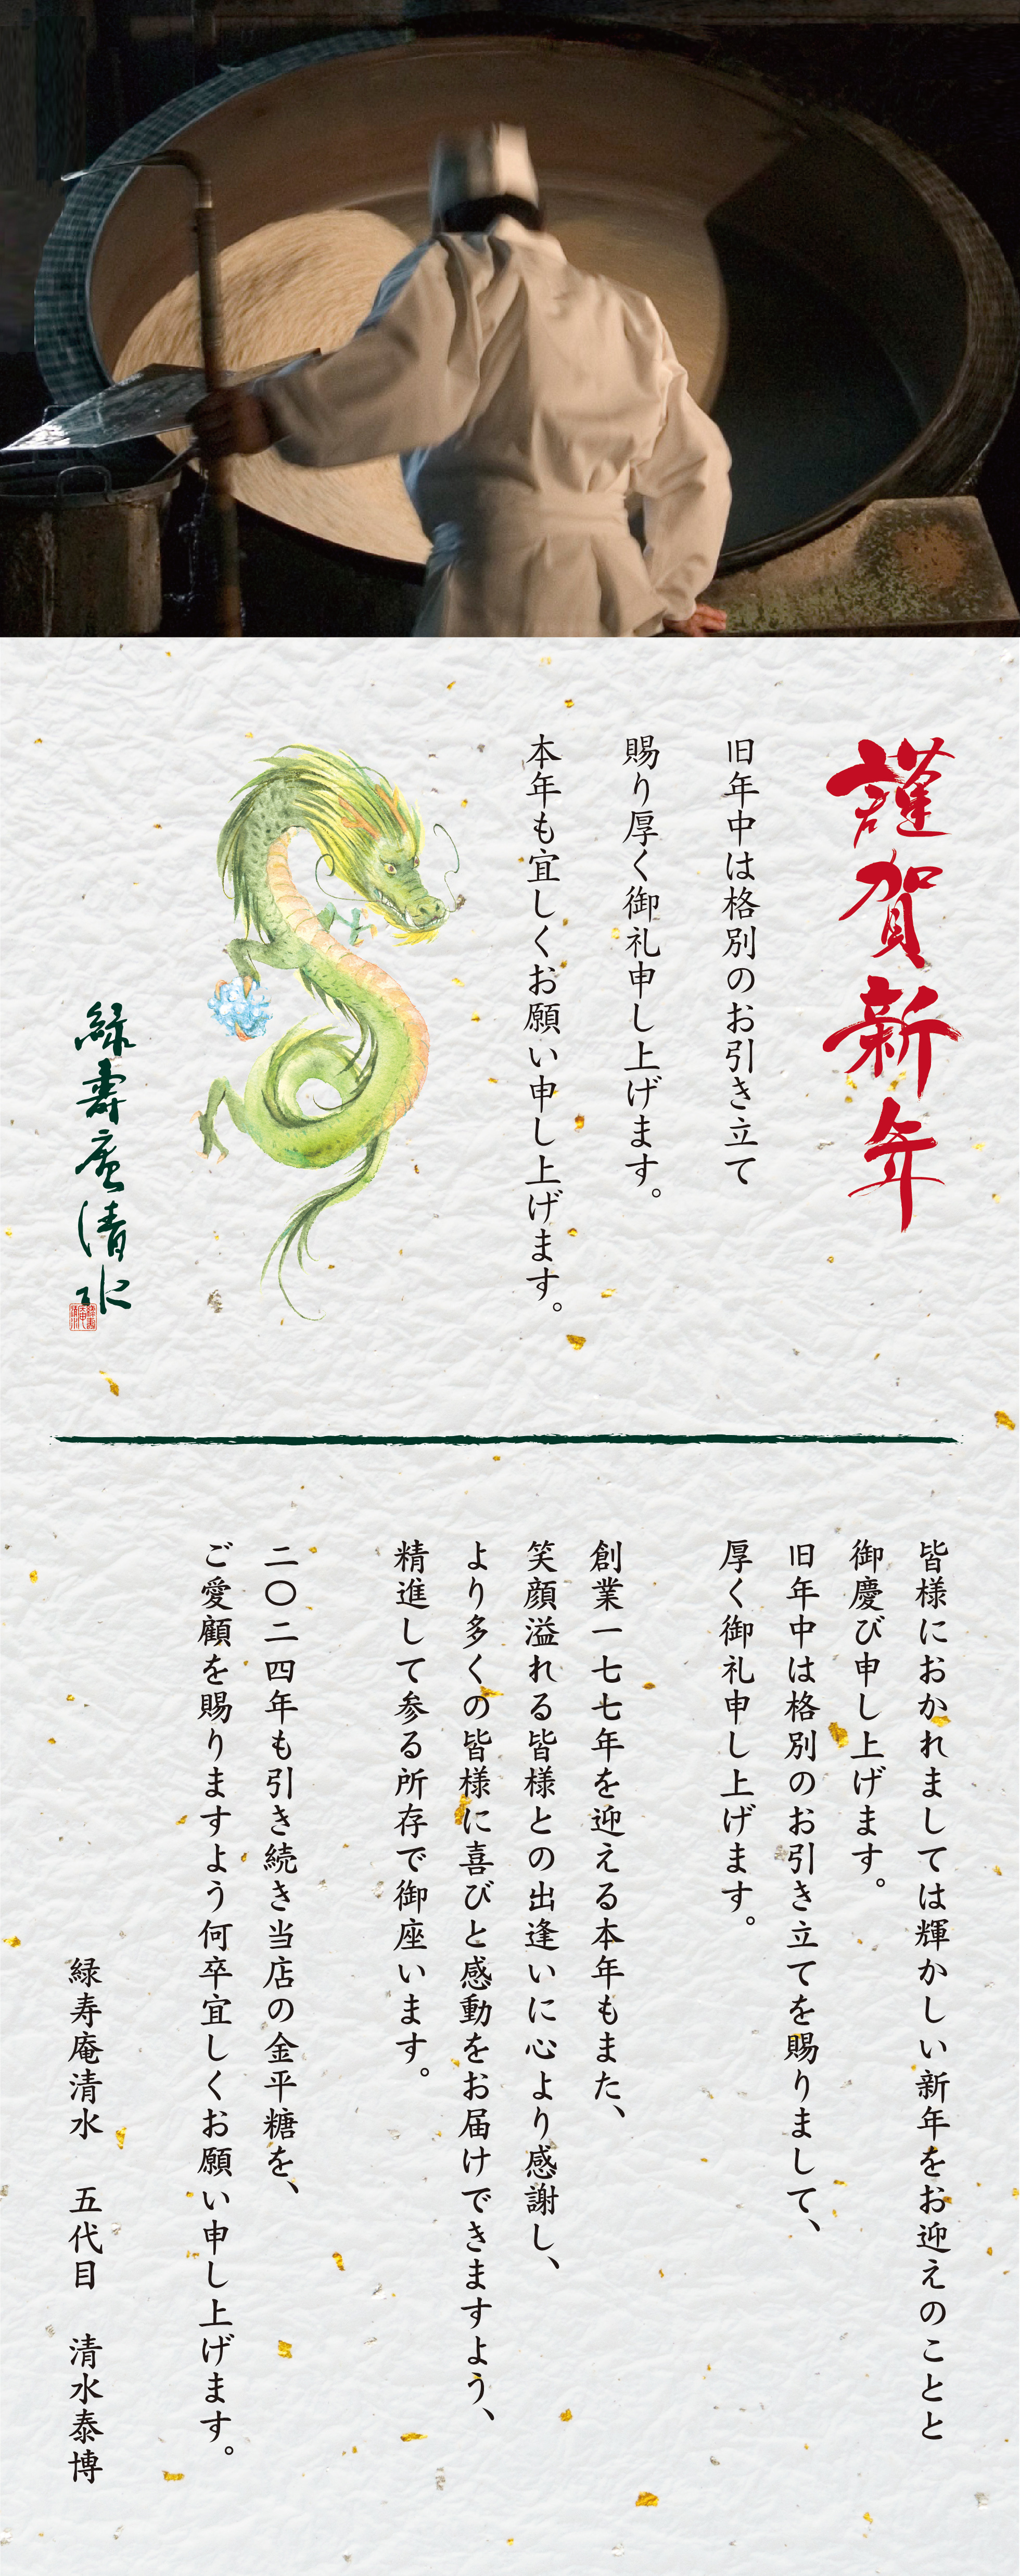 謹賀新年
旧年中は格別のお引き立て
賜り厚く御礼申し上げます。
本年も宜しくお願い申し上げます。
緑壽庵清水
皆様におかれましては輝かしい新年をお迎えのことと
御慶び申し上げます。
旧年中は格別のお引き立てを賜りまして、
厚く御礼申し上げます。
創業一七七年を迎える本年もまた、
笑顔溢れる皆様との出逢いに心より感謝し、
より多くの皆様に喜びと感動をお届けできますよう、
精進して参る所存で御座います。
二〇二四年も引き続き当店の金平糖を、
ご愛顧を賜りますよう何卒宜しくお願い申し上げます。
緑寿庵清水 五代目 清水泰博